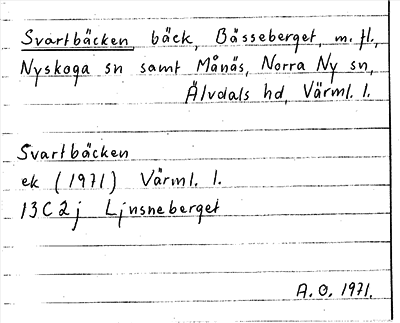 Svartbäcken bäck, Bässeberget, m. fl.,
Nyskoga sn samt Månäs, Norra Ny sn,
Älvdals hd, Värml. l.
Svartbäcken
ek (1971) Värml. l.
13C2j Ljnsneberget
A. O. 1971.